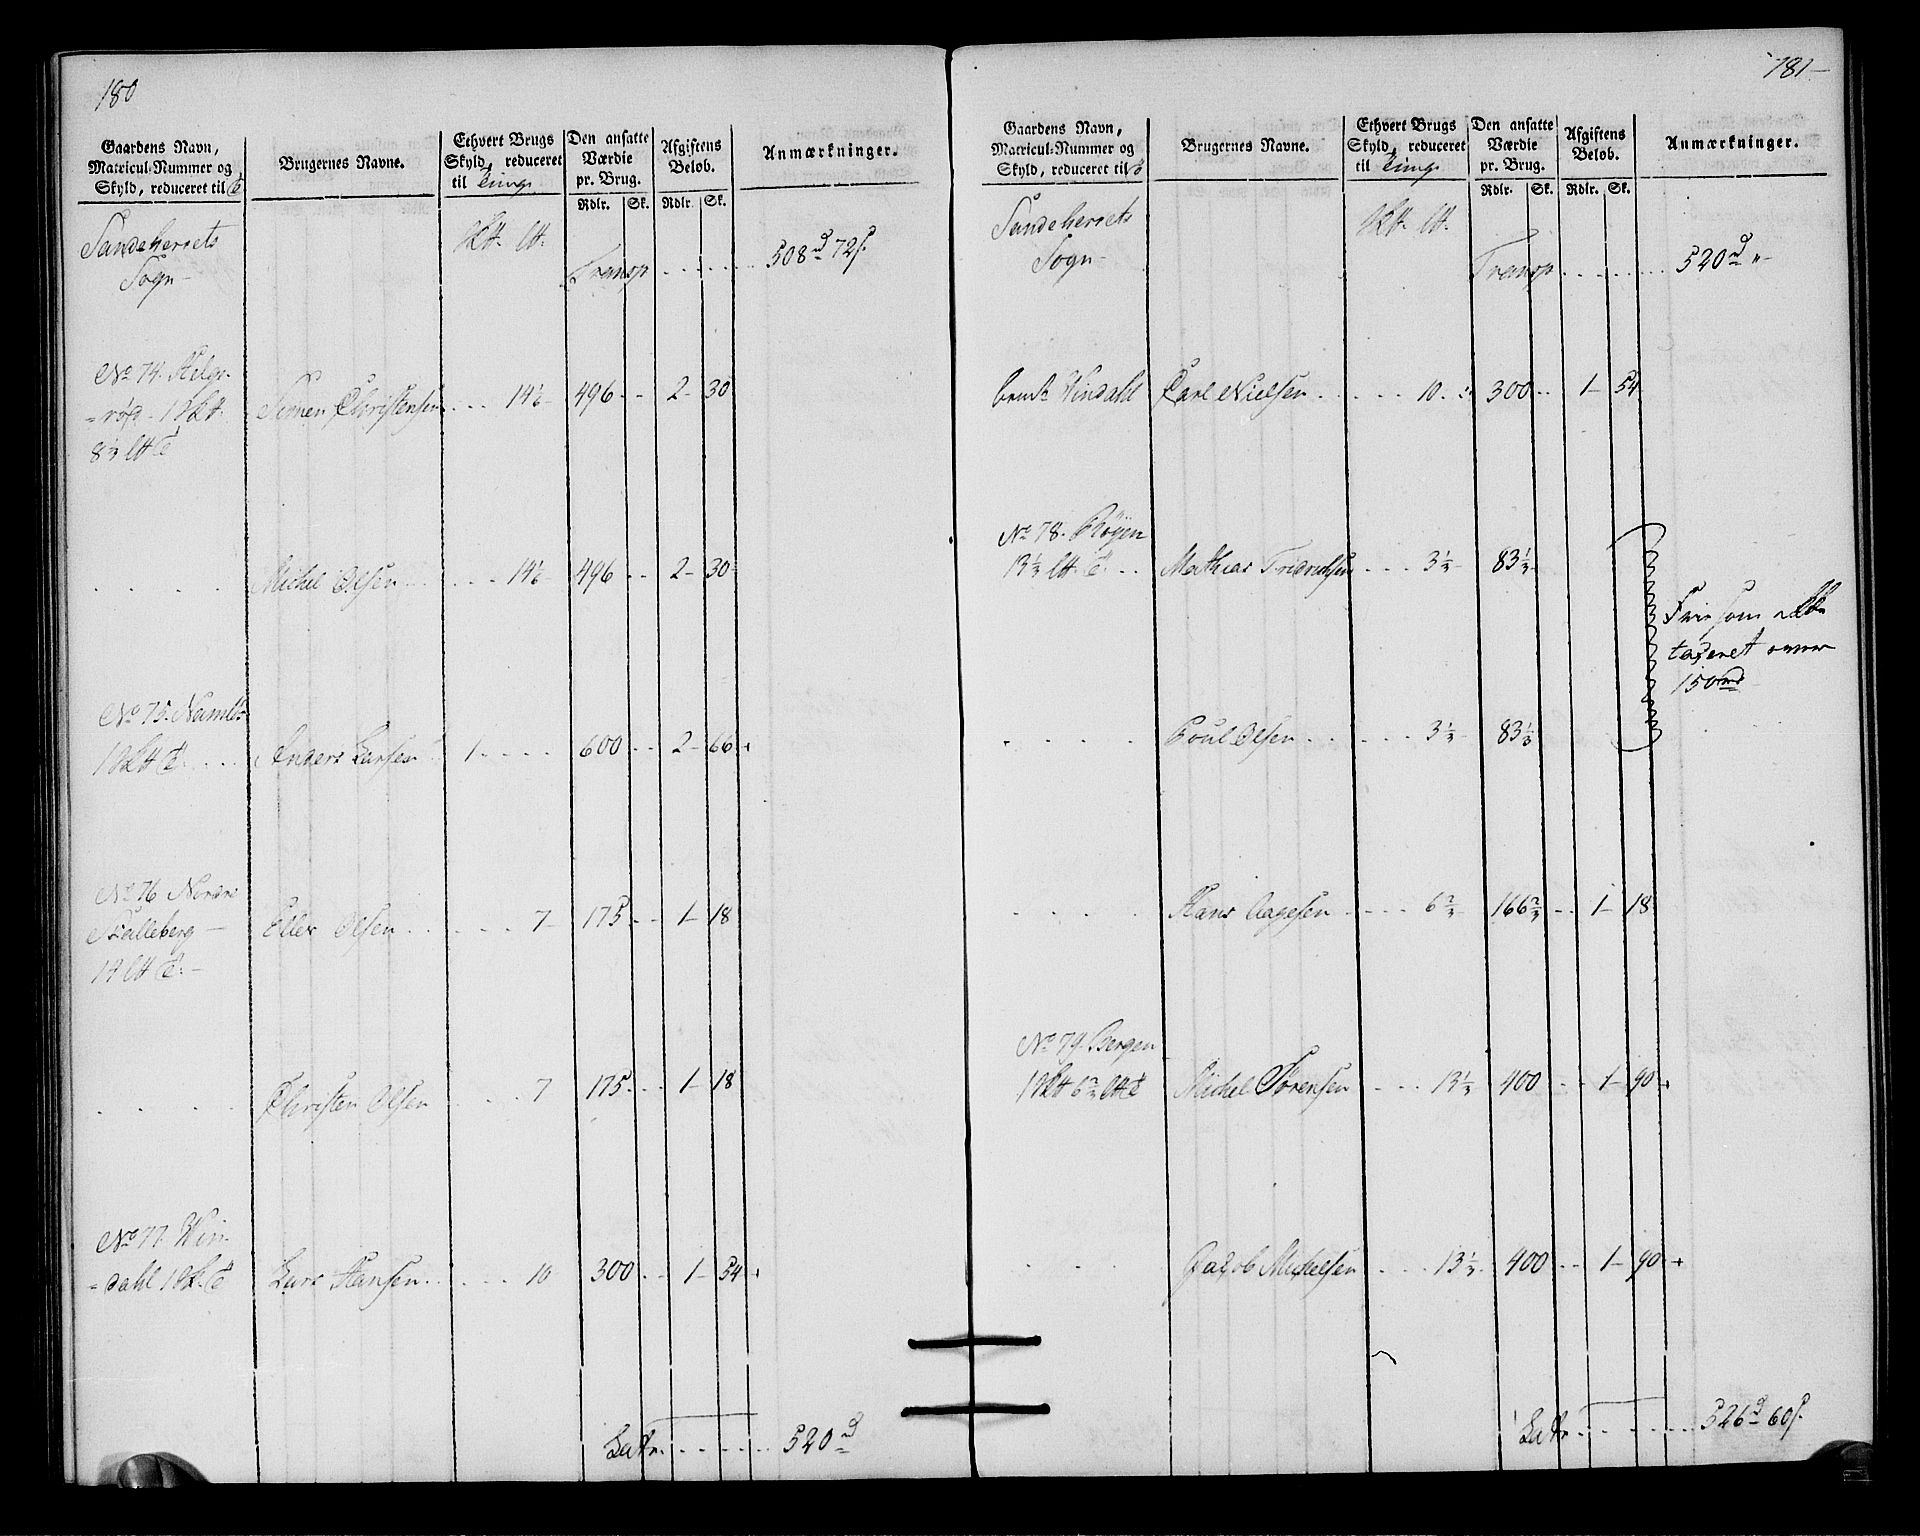 180
Gaardens Navn,
Matricul-Nummer og
Skyld, reduceret til
Brugernes Navne.
Ethvert Brugs
Skyld, reduceret
til Tung
Den ansatte
Værdie
pr. Brug.
Rdlr. Sk.
Afgiftens
Beløb.
Rdlr. Sk.
Anmærkninger.
Sandeherrets
Sogn
Transp . . . . . . 508 72
No 74. Helge-
=rød - 1
8½
Simen Christensen . . . 14 496 . . 2 - 30
Michel Olsen . . . . . 14 496 . . 2 - 30
No 75.
1
Anders Larsen 1 . . . . 600 . . 2 - 66 +
No 76 Nordre
Skalleberg
14
Eller Olsen . . . . . 7 - 175 . . 1 - 18
Christen Olsen . . . . 7 175 . . 1 - 18
No 77. Win-
=dahl 1
Lars Hansen . . . . . 10 300 . . 1 - 54 +
Latr. . . . . . . 520
181
Gaardens Navn,
Matricul-Nummer og
Skyld, reduceret til
Brugernes Navne.
Ethvert Brugs
Skyld, reduceret
til Tung
Den ansatte
Værdie
pr. Brug.
Rdlr. Sk.
Afgiftens
Beløb.
Rdlr. Sk.
Anmærkninger.
Sandeherrets
Sogn
Transp . . . . . . . 520 "
Windahl Carl Nielsen . . . . . 10 . 300 . . 1 - 54
No 78. Røyen
13⅓
Mathias . . . 3⅓ 83⅓
Frie som ikke
taxeret over
150
Poul Olsen . . . . . 3⅓ 83⅓
Hans Aagesen . . . . 6⅔ 166⅔ . . 1 - 18
No 79. Bergen
1 6⅔
Michel Sørensen . . . 13⅓ 400 . . 1 - 90 +
Jacob Michelsen . . . 13⅓ 400 . . 1 - 90 +
Latr. . . . . . . 526 60